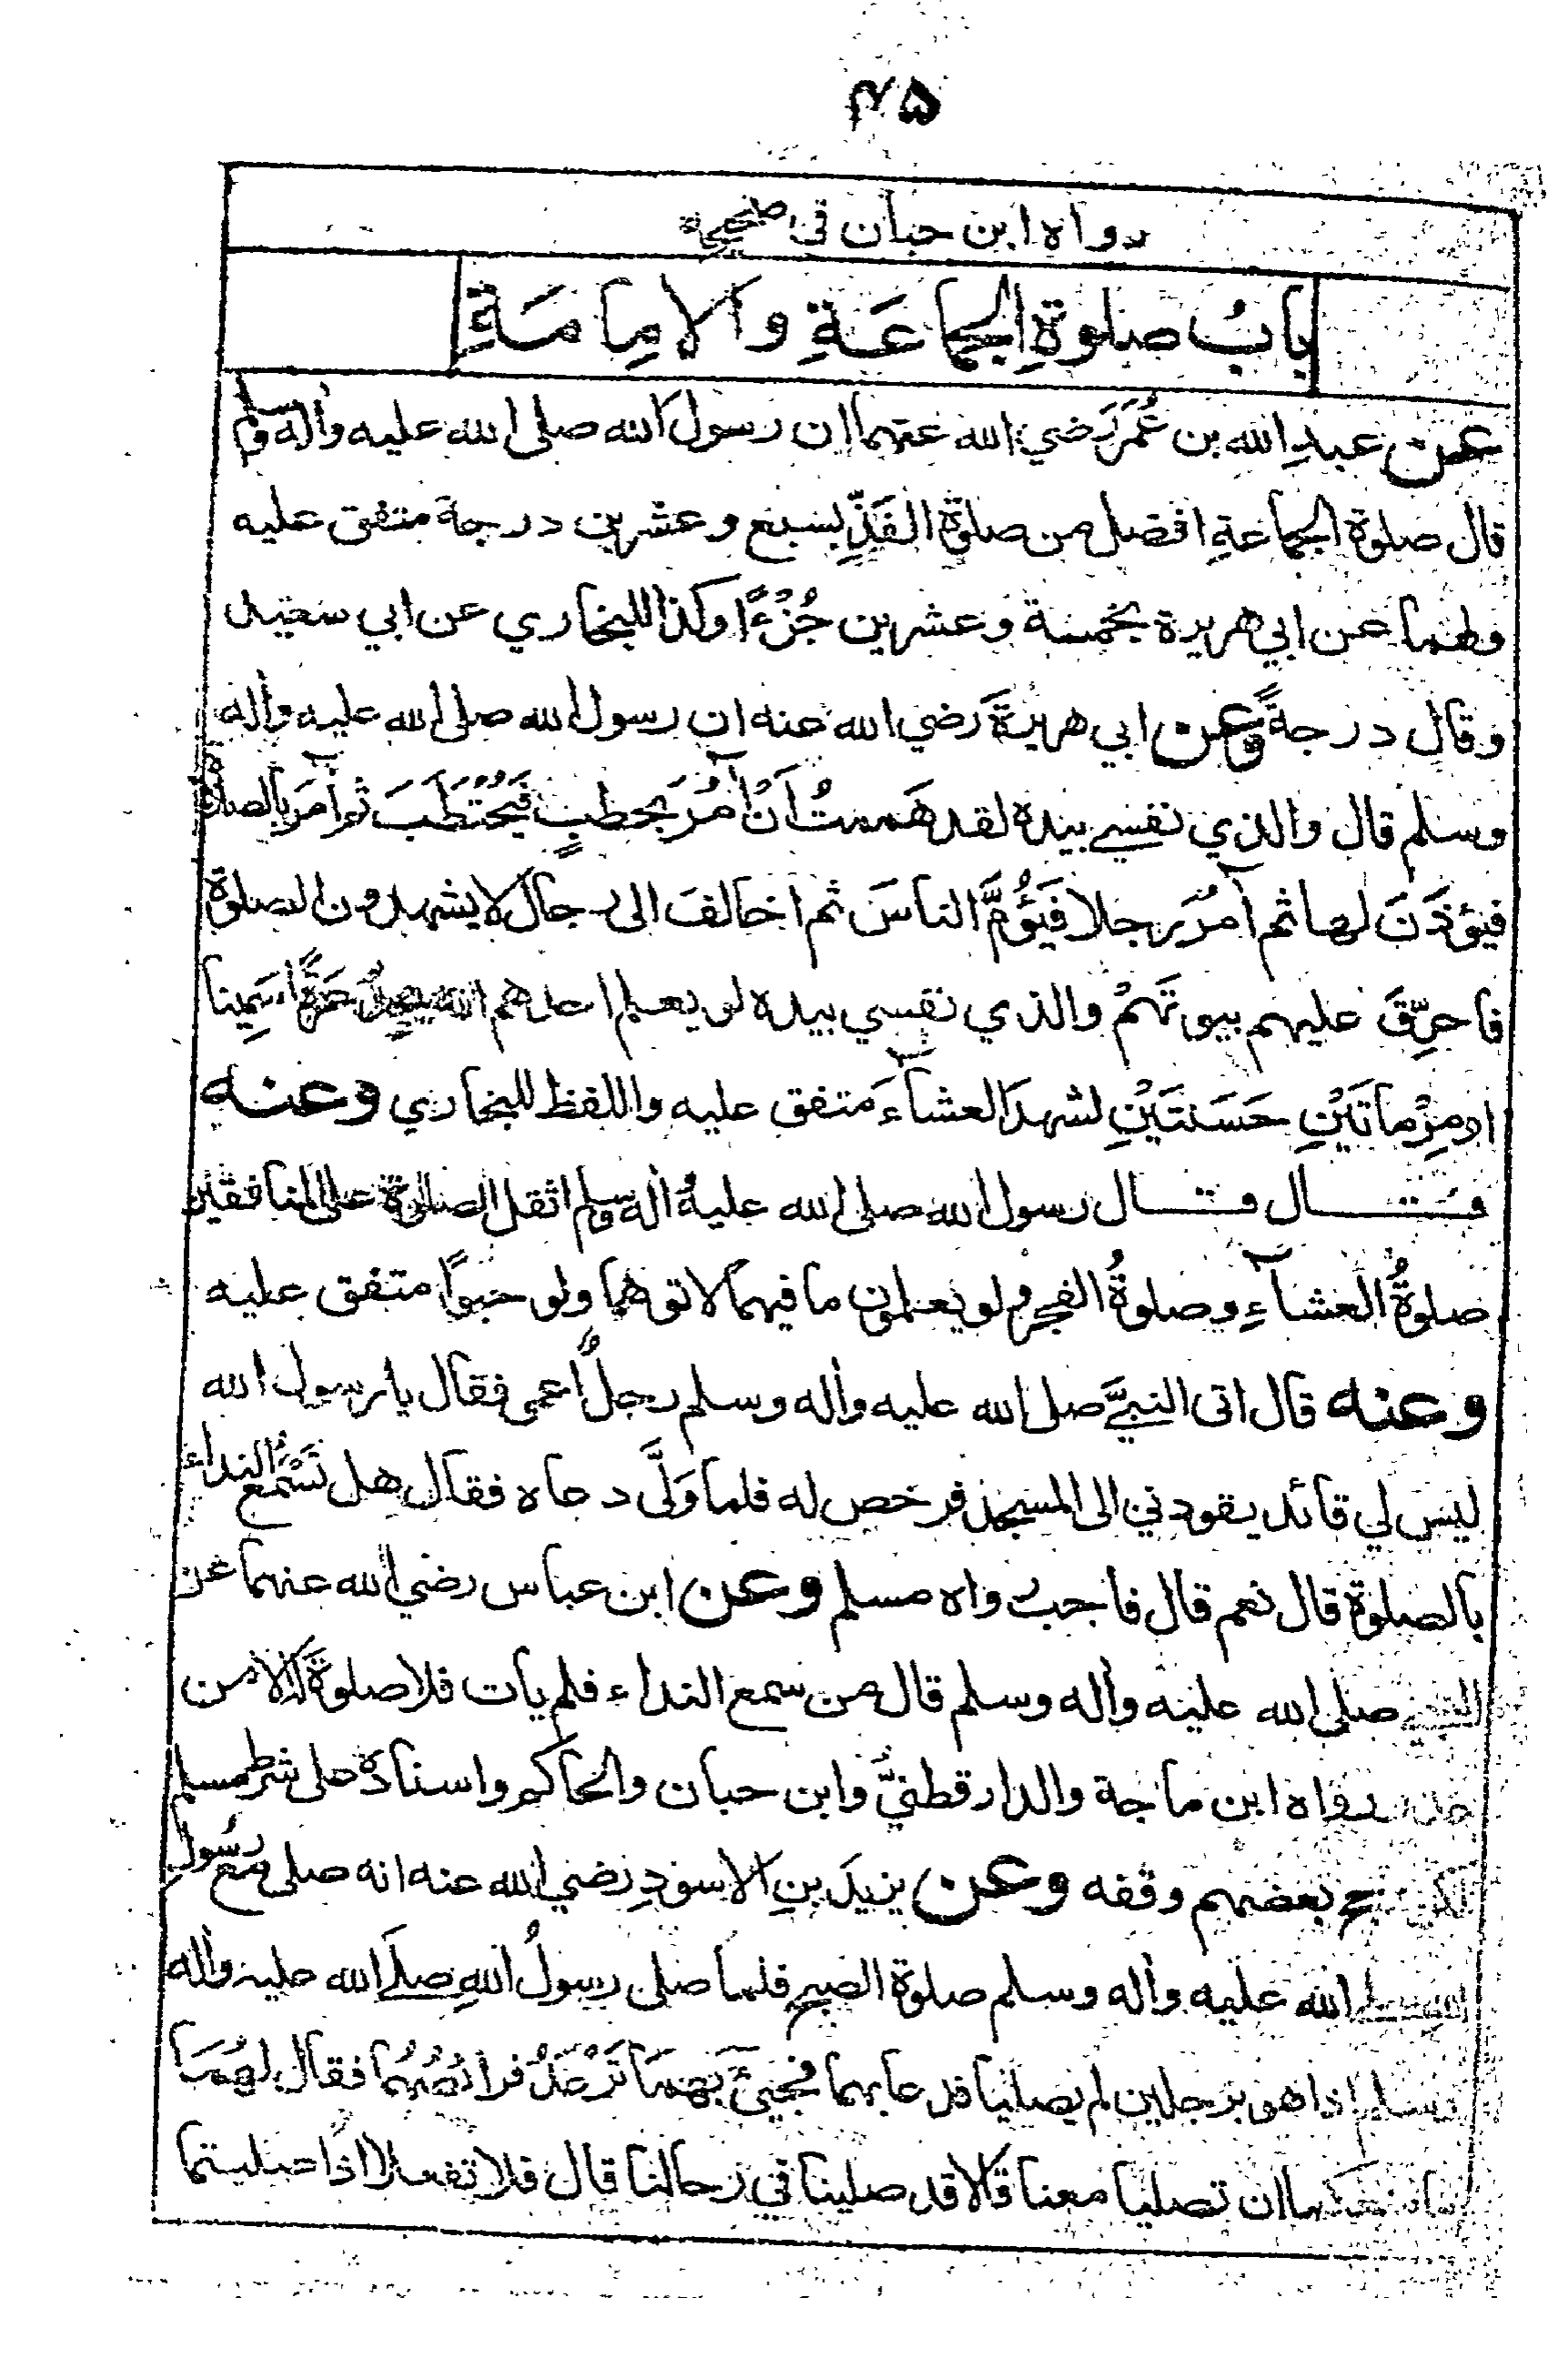 ۴۵
رواه ابن حبان في صحيحه
بابُ صلوةِ الجماعَةِ والامِامَةِ
عن عبدِ الله بن عُمَرَ رَضي الله عنهما ان رسول الله صلى الله عليه واٰله وسلم
قال صلوة الجماعةِ افضل من صلوة الفَذِّ بسبع وعشرين درجة متفق عليه
ولهما عن ابي هريرة بخمسة وعشرين جُزْءًا وكذا للبخاري عن ابي سعيد
وقال درجةً وعن ابي هريرةَ رضي الله عنه ان رسول الله صلى الله عليه واٰله
وسلم قال والذي نفسي بيده لقد هَممتُ اَنْ آمُرَ بحطبٍ فَيُحْتَطَبَ ثم آمرَ بالصلوة
فيؤذَنَ لها ثم آمُرَ رجلا فَيَؤُمَّ الناسَ ثم اخالفَ الى رجال لا يشهدون الصلوة
فاحرِّقَ عليهم بيوتَهمْ والذي نفسي بيده لو يعلم احدهم انه يجدُ عَرقًا سَمِينا
او مِرْماتَيْنِ حَسَنتَيْنِ لشهدَ العشآءَ متفق عليه واللفظ للبخاري وعنه
قال قال رسول الله صلى الله عليه واٰله وسلم اثقل الصلوة على المنافقين
صلوةُ العشآءِ وصلوةُ الفجر ولو يعلمون ما فيهما لاتوهما ولو حبوًا متفق عليه
وعنه قال اتى النبيَّ صلى الله عليه واٰله وسلم رجلٌ اعمى فقال يا رسول الله
ليس لي قائد يقودني الى المسجد فرخص له فلما وَلَّى دعاه فقال هل تَسْمَعُ النداء
بالصلوة قال نعم قال فاجب رواه مسلم وعن ابن عباس رضي الله عنهما عن
النبي صلى الله عليه واٰله وسلم قال من سمع النداء فلم يات فلا صلوةَ له الا من
عذر رواه ابن ماجة والدارقطنيُّ وابن حبان والحاكم واسناده على شرط مسلم
لكن رجح بعضهم وقفه وعن يزيدَ بنِ الاسودِ رضي الله عنه انه صلى مع رسُول
الله صلى الله عليه واٰله وسلم صلوة الصبح فلما صلى رسولُ اللهِ صلَى الله عليه واٰله
وسلم اذا هو برجلين لم يصليا فدعا بهما فجيئَ بهما تَرْعَدُ فرائصُهُما فقال لهُمَا
ما منعكما ان تصليا معنا قالا قد صلينا في رحالنا قال فلا تفعلا اذا صليتما